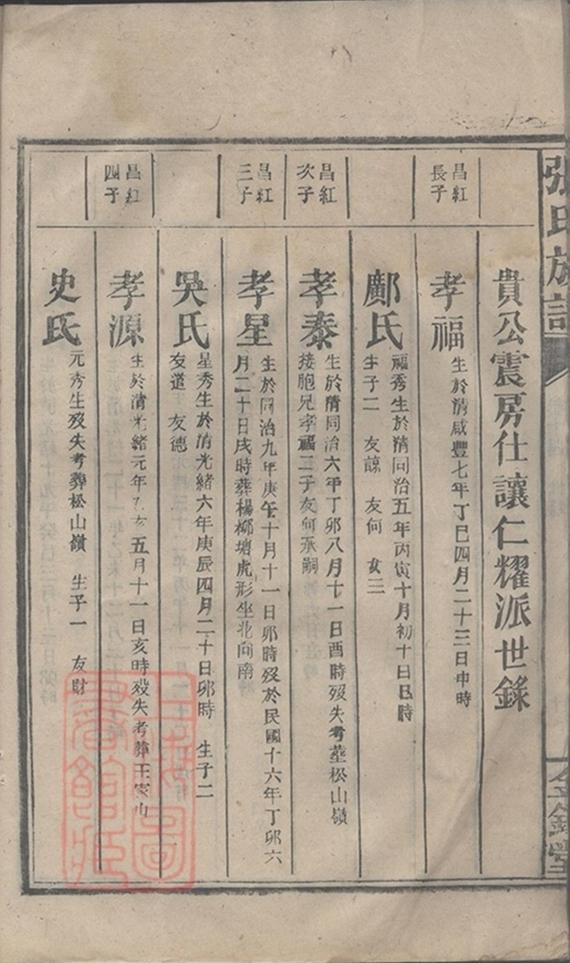 張氏族譜
金鑑堂
貴公震房仕讓仁耀派世錄
昌紅
長子
孝福
生於清咸豐七年丁巳四月二十三日申時
鄺氏
福秀生於清同治五年丙寅十月初十日巳時
生子二 友諒 友何
昌紅
次子
孝泰
生於清同治六年丁卯八月十一日酉時歿失考塟松山嶺
接胞兄孝福二子友何承嗣
昌紅
三子
孝星
生於同治九年庚午十月十一日卯時歿於民國十六年丁卯六
月二十日戌時葬楊柳塘虎形坐北向南
吳氏
星秀生於清光緒六年庚辰四月二十日卯時 生子二
友道 友德
昌紅
四子
孝源
生於清光緒元年乙亥五月十一日亥時歿失考葬王家山
史氏
元秀生歿失考葬松山嶺 生子一 友財